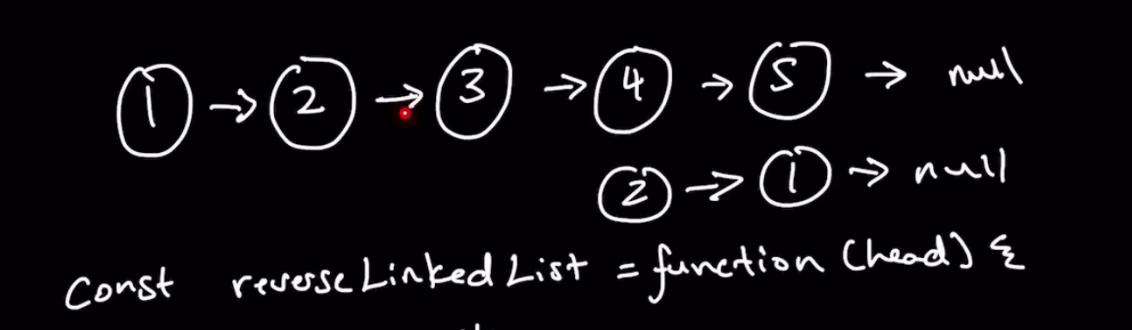 1 → 2 → 3 → 4 → 5 → null
2 → 1 → null
Const reverseLinkedList = function (head) {